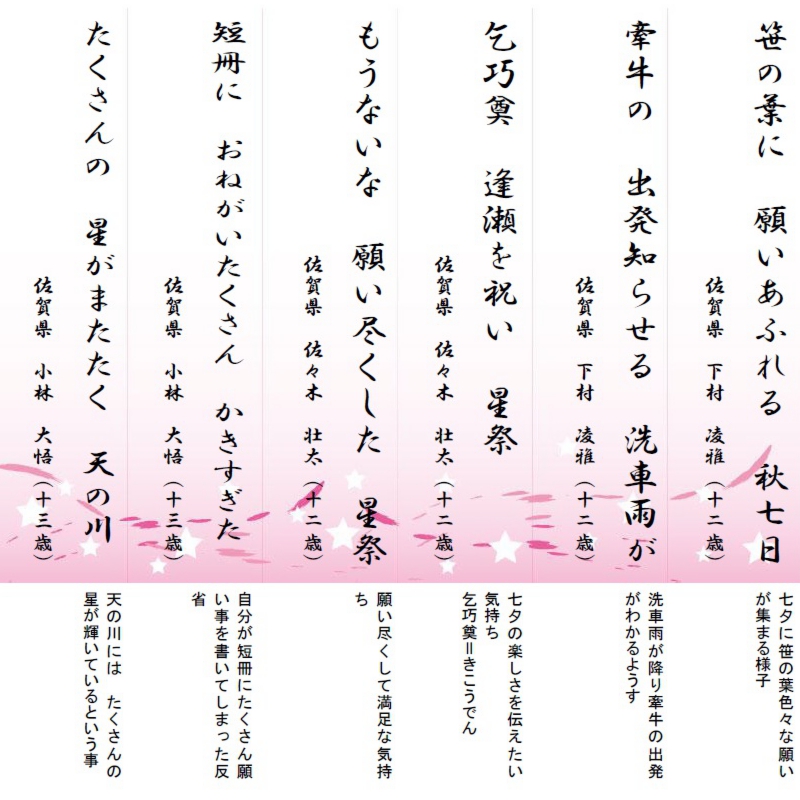 笹の葉に　願いあふれる　秋七日
佐賀県　下村　凌雅（十二歳）
七夕に笹の葉色々な願い
が集まる様子
牽牛の　出発知らせる　洗車雨が
佐賀県　下村　凌雅（十二歳）
洗車雨が降り牽牛の出発
がわかるようす
乞巧奠　逢瀬を祝い　星祭
佐賀県　佐々木　壮太（十二歳）
七夕の楽しさを伝えたい
気持ち
乞巧奠＝きこうでん
もうないな　願い尽くした　星祭
佐賀県　佐々木　壮太（十二歳）
願い尽くして満足な気持
ち
短冊に　おねがいたくさん　かきすぎた
佐賀県　小林　大悟（十三歳）
自分が短冊にたくさん願
い事を書いてしまった反
省
たくさんの　星がまたたく　天の川
佐賀県　小林　大悟（十三歳）
天の川には　たくさんの
星が輝いているという事